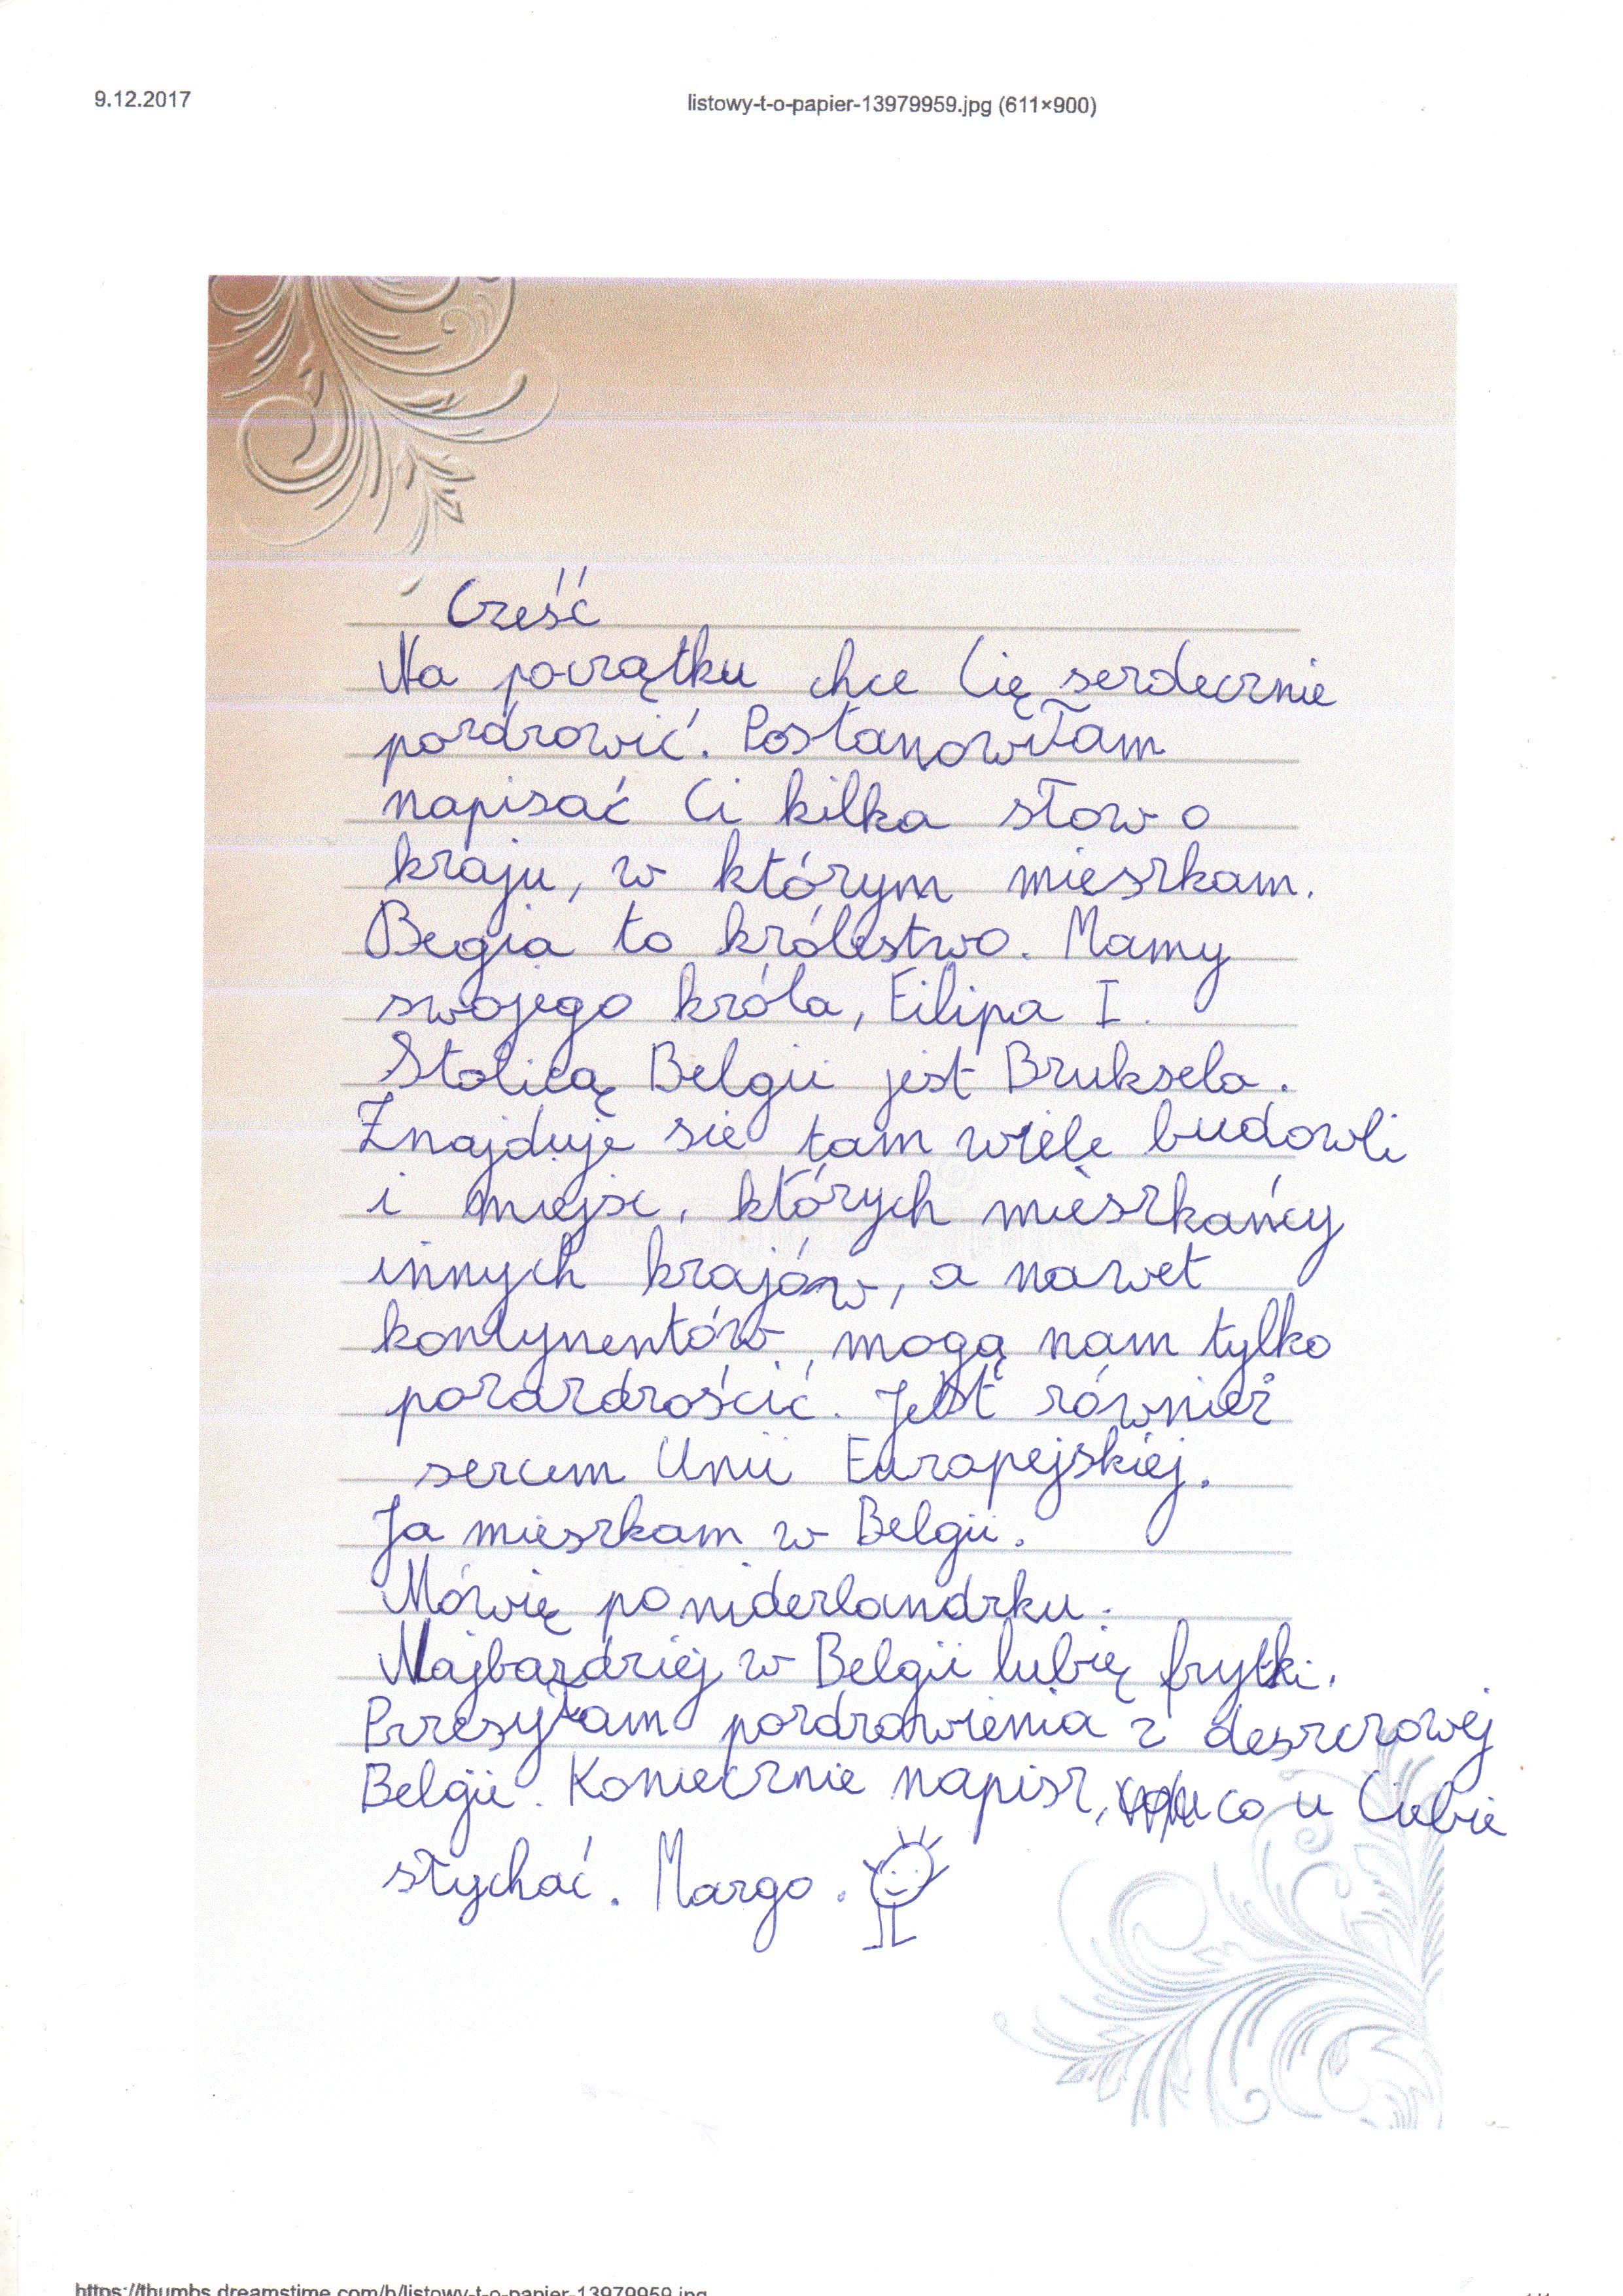 9.12.2017 listowy-t-o-papier-13979959.jpg (611×900)
Cześć
Na początku chce Cię serdecznie
pozdrowić. Postanowiłam
napisać Ci kilka słow o
kraju, w którym mieszkam.
Begia to królestwo. Mamy
swojego króla, Filipa I.
Stolicą Belgii jest Bruksela.
Znajduje sie tam wiele budowli
i miejsc, których mieszkańcy
innych krajów, a nawet
kontynentów, mogą nam tylko
pozazdrościć. Jest również
sercem Unii Europejskiej.
Ja mieszkam w Belgii.
Mówię po niderlandzku.
Najbardziej w Belgii lubię frytki.
Przesyłam pozdrowienia z deszczowej
Belgii. Koniecznie napisz, co u Ciebie
słychać. Margo.
https://thumbs.dreamstime.com/b/listowy-t-o-papier-13979959.jpg